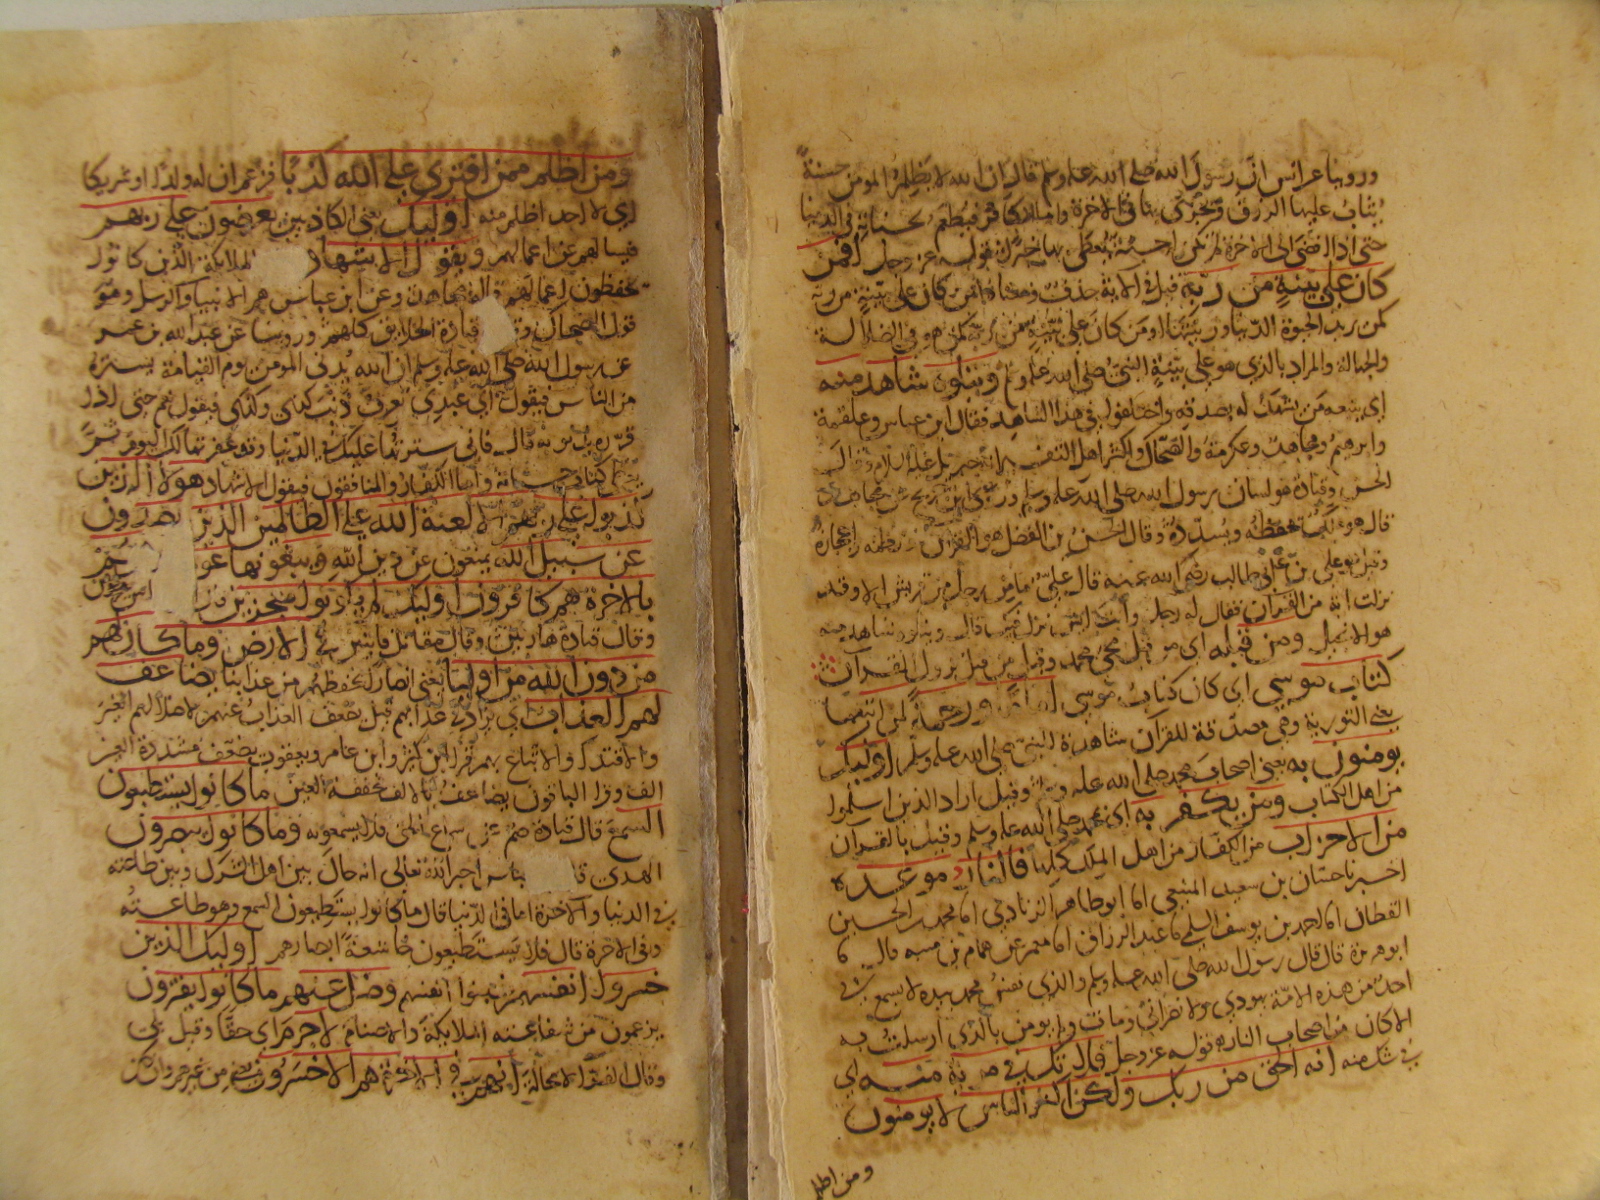 وروينا عن انس ان رسول الله صلى الله عليه وسلم قال ان الله لا يظلم المومن حسنة
يثاب عليها الرزق في الدنيا ويجزى بها في الاخرة واما الكافر فيطعم بحسناته في الدنيا
حتى اذا افضى الى الاخرة لم تكن له حسنة يعطى بها خيرا قوله عز وجل افمن
كان على بينة من ربه قيل في الاية حذف ومعناه افمن كان على بينة من ربه
كمن يريد الحيوة الدنيا وزينتها او من كان على بينة من ربه كمن هو في الضلالة
والجهالة والمراد بالذي هو على بينة النبي صلى الله عليه وسلم ويتلوه شاهد منه
اي يتبعه من يشهد له بصدقه واختلفوا في هذا الشاهد فقال ابن عباس وعلقمة
وابرهيم ومجاهد وعكرمة والضحاك واكثر اهل التفسير انه جبريل عليه السلام وقال
الحسن وقتادة هو لسان رسول الله صلى الله عليه وسلم وروى ابن جريج عن مجاهد
قال هو ملك يحفظه ويسدده وقال الحسين بن الفضل هو القران ونظمه واعجازه
وقيل هو علي بن ابي طالب رضي الله عنه قال علي ما من رجل من قريش الا وقد
نزلت اية من القران فقال له رجل وانت ايش نزل فيك قال ويتلوه شاهد منه
هو الانجيل ومن قبله اي من قبل مجيء محمد وقيل من قبل نزول القران
كتاب موسى اي كان كتاب موسى اماما ورحمة لمن اتبعها
يعني التورية وهي مصدقة للقران شاهدة للنبي صلى الله عليه وسلم اوليك
يومنون به يعني اصحاب محمد صلى الله عليه وسلم وقيل اراد الذين اسلموا
من اهل الكتاب ومن يكفر به اي بمحمد صلى الله عليه وسلم وقيل بالقران
من الاحزاب من الكفار من اهل الملل كلها فالنار موعده
اخبرنا حسان بن سعيد المنيعي انا ابو طاهر الزيادي انا محمد بن الحسين
القطان انا احمد بن يوسف السلمي نا عبد الرزاق انا معمر عن همام بن منبه قال نا
ابو هريرة قال قال رسول الله صلى الله عليه وسلم والذي نفس محمد بيده لا يسمع بي
احد من هذه الامة يهودي ولا نصراني ومات ولم يومن بالذي ارسلت به
الا كان من اصحاب النار قوله عز وجل فلا تك في مرية منه اي
في شك منه انه الحق من ربك ولكن اكثر الناس لا يومنون
ومن اظلم
ومن اظلم ممن افترى على الله كذبا فزعم ان له ولدا او شريكا
اي لا احد اظلم منه اوليك يعني الكاذبين يعرضون على ربهم
فيسالهم عن اعمالهم ويقول الاشهاد الملايكة الذين كانوا
يحفظون اعمالهم قاله مجاهد وعن ابن عباس هم الانبيا والرسل وهو
قول الضحاك وقال قتادة الخلايق كلهم وروينا عن عبد الله بن عمر
عن رسول الله صلى الله عليه وسلم ان الله يدني المومن يوم القيامة يستره
من الناس فيقول اي عبدي تعرف ذنب كذى وكذى فيقول نعم حتى اذا
قرره بذنوبه قال فاني سترتها عليك في الدنيا وقد غفرتها لك اليوم ثم
يعطى كتاب حسناته واما الكفار والمنافقون فيقول الاشهاد هولا الذين
كذبوا على ربهم الا لعنة الله على الظالمين الذين يصدون
عن سبيل الله يمنعون عن دين الله ويبغونها عوجا وهم
بالاخرة هم كافرون اوليك لم يكونوا معجزين
وقال قتادة هاربين وقال مقاتل فايتين في الارض وما كان لهم
من دون الله من اوليا يعني انصارا يحفظهم من عذابنا يضاعف
لهم العذاب اي يزاد في عذابهم قيل يضعف العذاب عليهم لاضلالهم الغير
واقتدا الاتباع بهم قرا ابن كثير وابن عامر ويعقوب يضعف مشددة العين
الف وقرا الباقون يضاعف بالالف مخففة العين ما كانوا يستطيعون
السمع قال قتادة صم عن سماع الحق فلا يسمعونه وما كانوا يبصرون
الهدى قال ابن عباس اخبر الله تعالى انه حال بين اهل الشرك وبين طاعته
في الدنيا والاخرة اما في الدنيا قال ما كانوا يستطيعون السمع وهو طاعته
وفي الاخرة قال فلا يستطيعون خاشعة ابصارهم اوليك الذين
خسروا انفسهم غبنوا انفسهم وضل عنهم ما كانوا يفترون
يزعمون من شفاعة الملايكة والاصنام لا جرم اي حقا وقيل بلى
وقال الفرا لا محالة انهم في الاخرة هم الاخسرون يعني من غيرهم وان كان